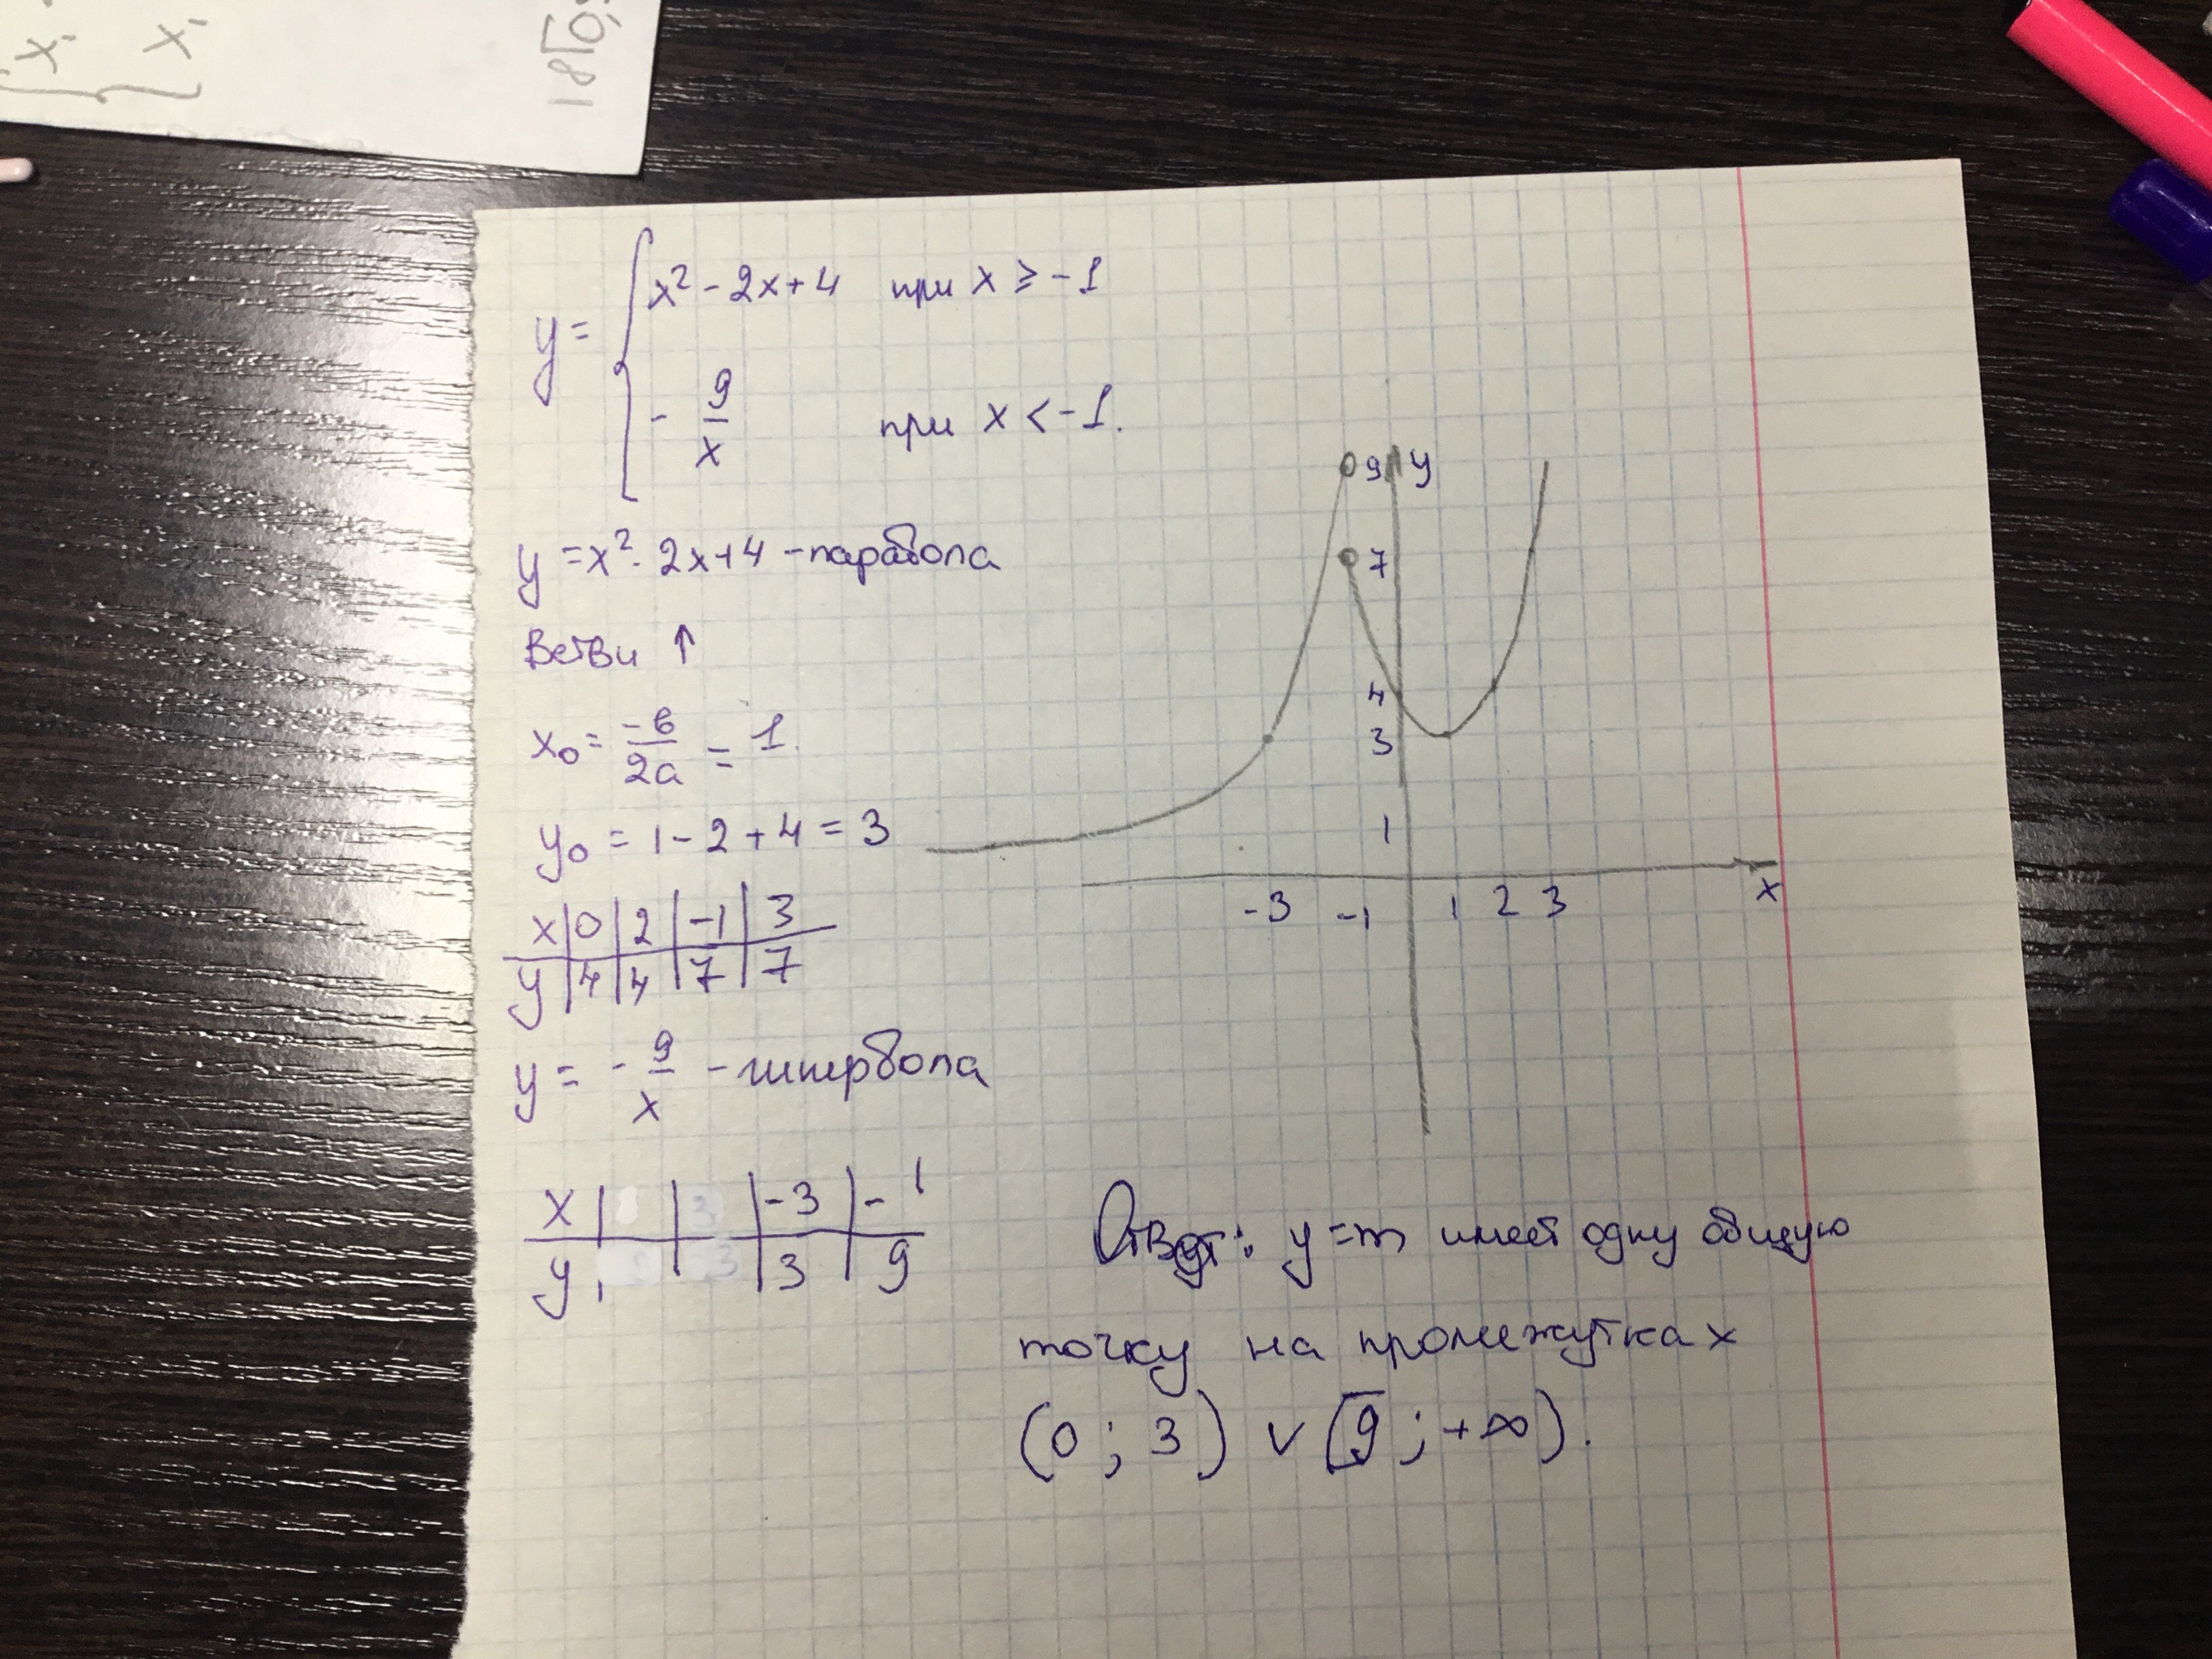 x.
x.
18
y = { x² - 2x + 4 при x ≥ -1
- 9/x при x < -1.
y = x² - 2x + 4 - парабола
Ветви ↑
x₀ = -в/2a = 1.
y₀ = 1 - 2 + 4 = 3
x | 0 | 2 | -1 | 3
y | 4 | 4 | 7 | 7
y = - 9/x - гипербола
x | | 3 | -3 | -1
y | 9 | -3 | 3 | 9
9 y
7
4
3
1
-3 -1 1 2 3 x
Ответ: y = m имеет одну общую
точку на промежутках
(0 ; 3) ∨ [9 ; +∞).